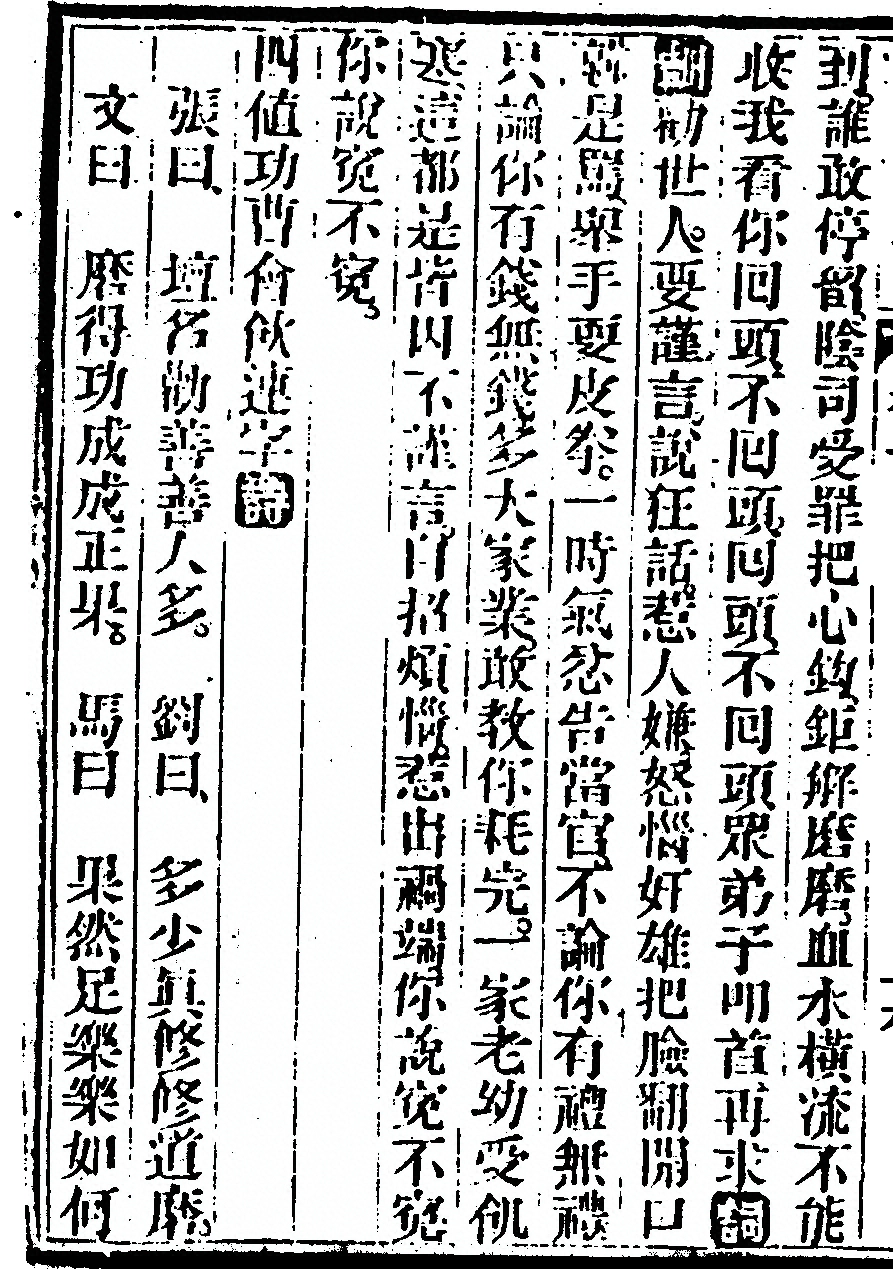 到。誰敢停留陰司受罪。把心鈎鉅解磨磨。血水橫流不能
收我看你回頭不回頭。回頭不回頭眾弟子叩首再求詞
勸世人。要謹言。說狂話。惹人嫌。怒惱奸雄把臉翻開口
就是罵。舉手要皮拳。一時氣忿告當官。不論你有禮無禮
只論你有錢無錢。多大家業。敢教你耗完。一家老幼受飢
寒。這都是皆因不謹言。自招煩惱。惹出禍端。你說冤不冤
你說冤不冤。
四值功曹會飲連字詩
張曰、壇名勸善善人多。劉曰、多少真修修道磨。
文曰 磨得功成成正果。馬曰 果然足樂樂如何